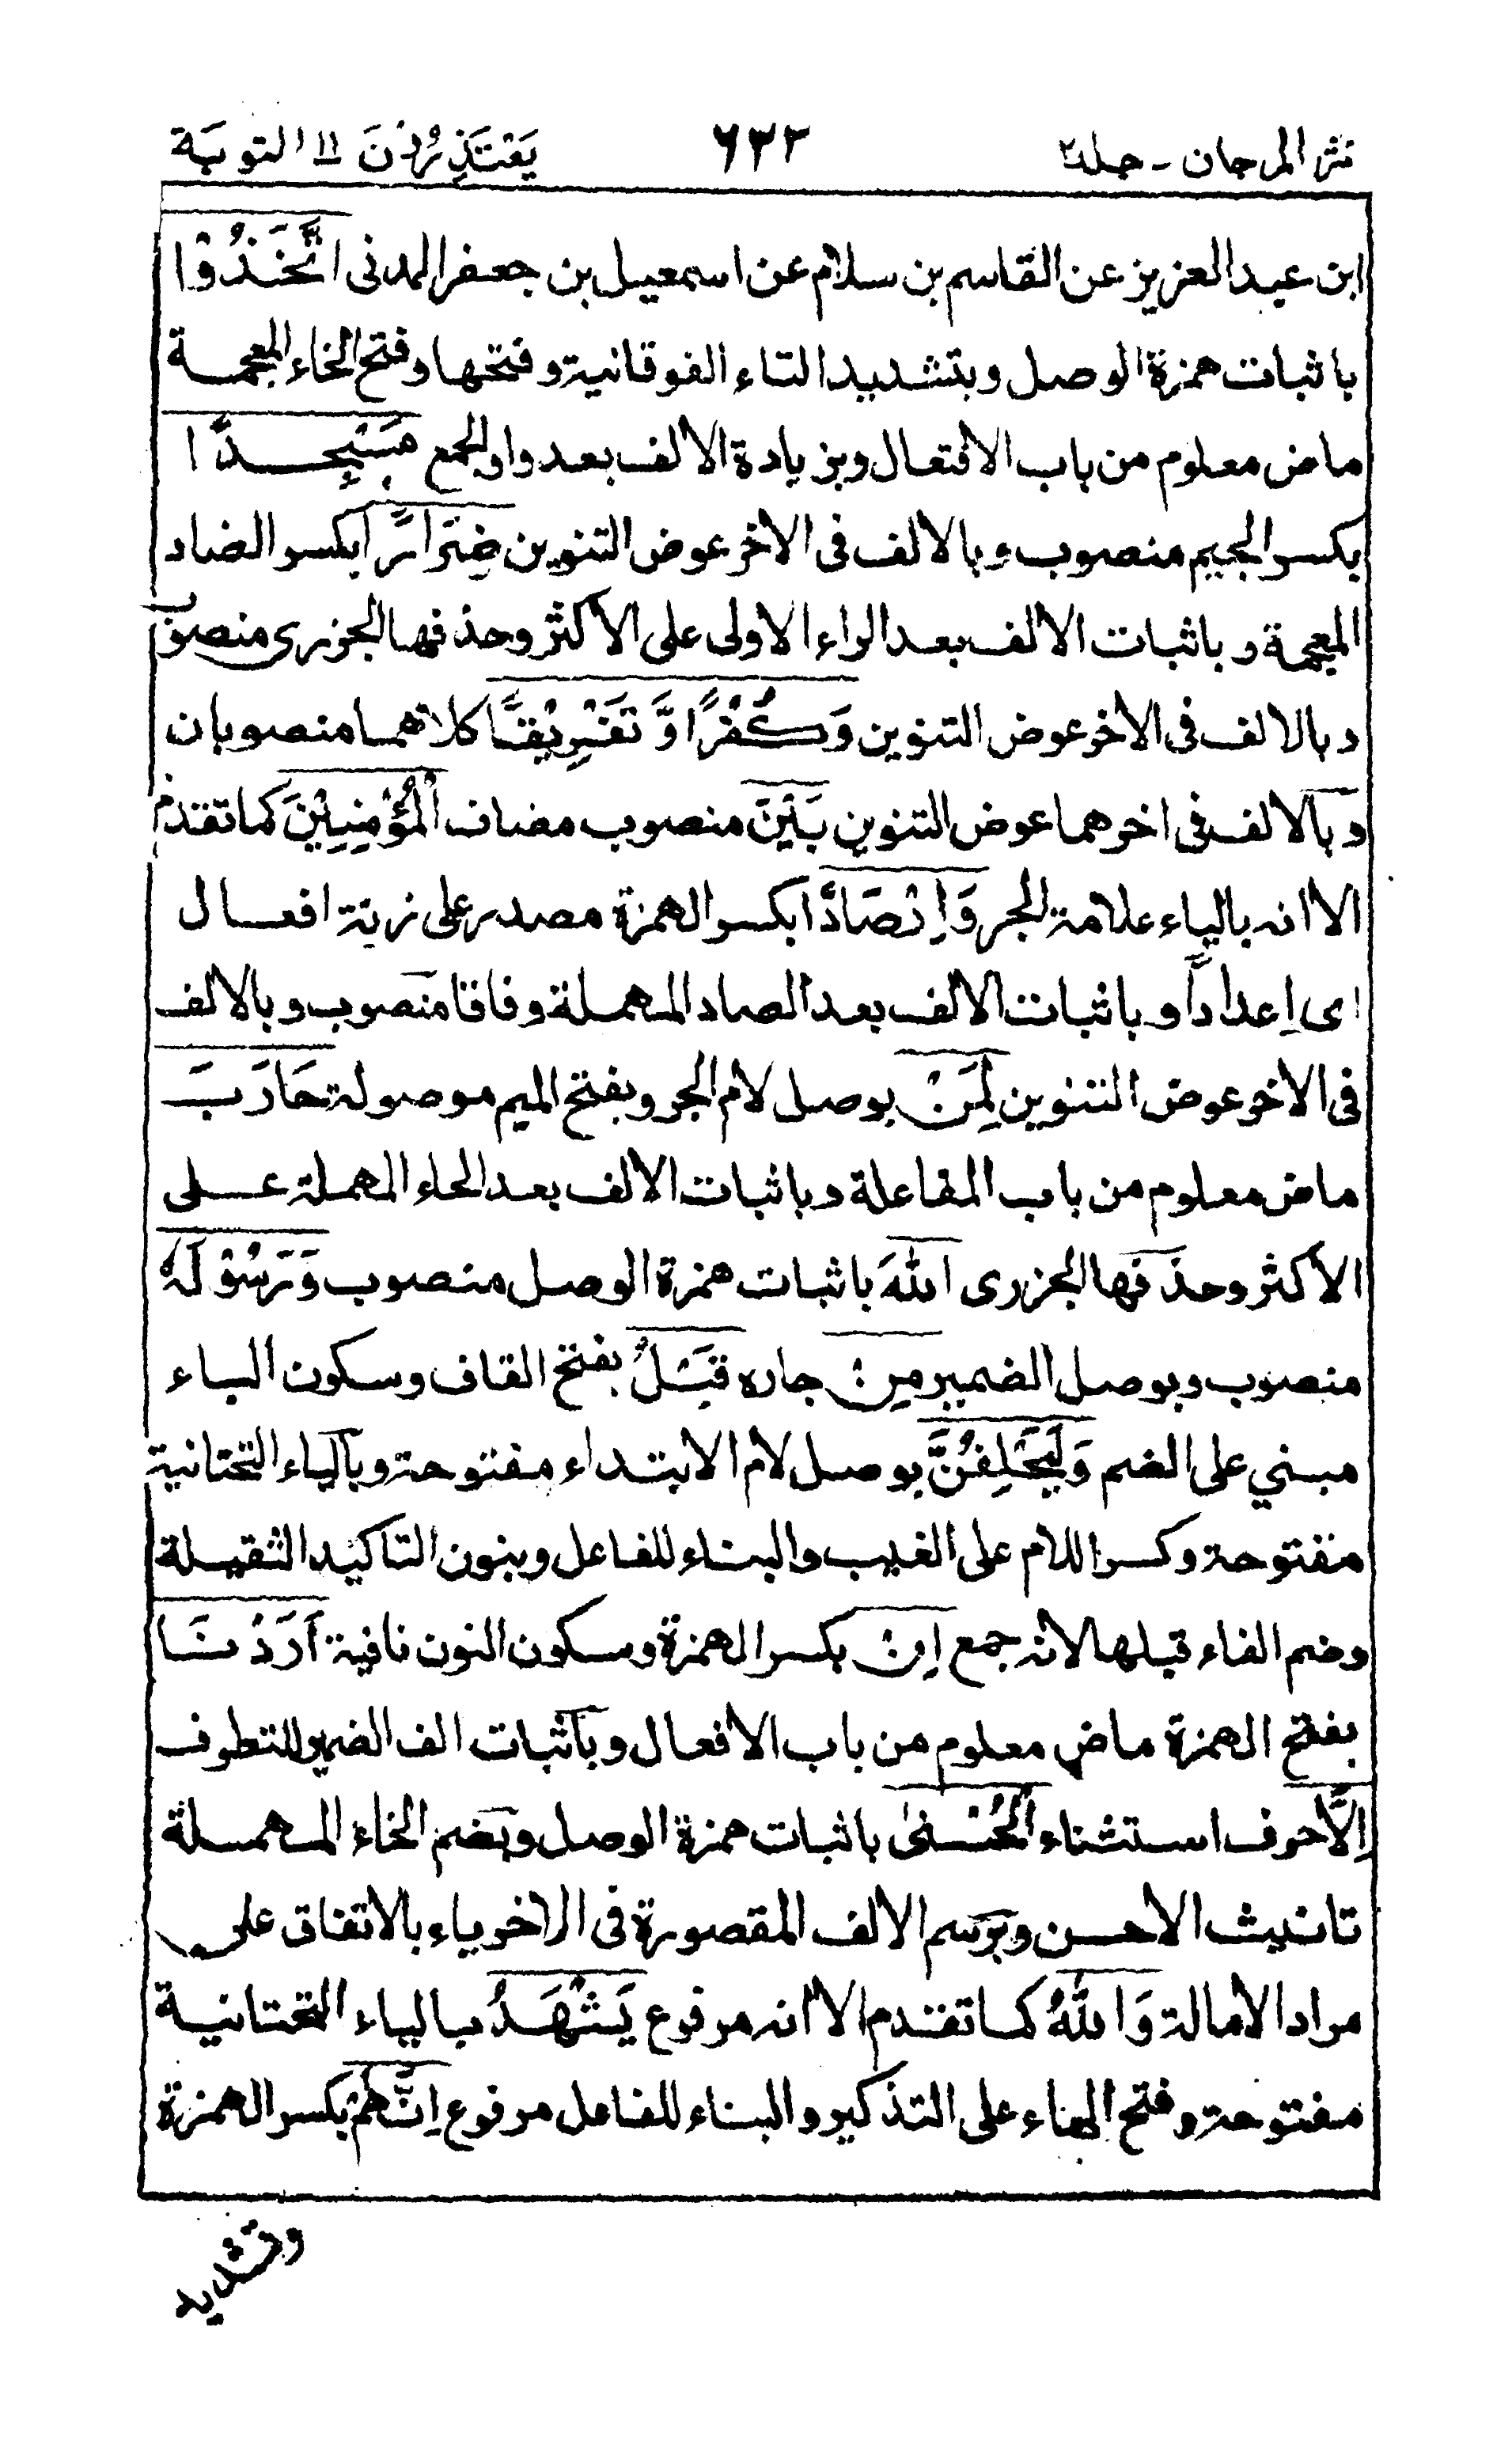 نثر المرجان - جلد ٢ ٦٣٢ يَعْتَذِرُوْنَ ١١ التوبَة
ابن عبد العزيز عن القاسم بن سلام عن اسمعيل بن جعفر المدنى اتَّخَذُوْا
باثبات همزة الوصل وبتشديد التاء الفوقانية وفتحها وفتح الخاء المعجمة
ماض معلوم من باب الافتعال وبزيادة الالف بعد واو الجمع مَسْجِدًا
بكسر الجيم منصوب وبالالف فى الاخر عوض التنوين ضِرَارًا بكسر الضاد
المعجمة وباثبات الالف بعد الراء الاولى على الاكثر وحذفها الجزرى منصوب
وبالالف فى الاخر عوض التنوين وَكُفْرًا وَّ تَفْرِيْقًا كلاهما منصوبان
وبالالف فى اخرهما عوض التنوين بَيْنَ منصوب مضاف الْمُؤْمِنِيْنَ كما تقدم
الا انه بالياء علامة الجر وَاِرْصَادًا بكسر الهمزة مصدر على زنة افعال
اى اِعداداً وباثبات الالف بعد الصاد المهملة وفاقا منصوب وبالالف
فى الاخر عوض التنوين لِمَنْ بوصل لام الجر وبفتح الميم موصولة حَارَبَ
ماض معلوم من باب المفاعلة وباثبات الالف بعد الحاء المهملة على
الاكثر وحذفها الجزرى اللهَ باثبات همزة الوصل منصوب وَرَسُوْلَهٗ
منصوب وبوصل الضمير مِنْ جاره قَبْلُ بفتح القاف وسكون الباء
مبني على الضم وَلَيَحْلِفُنَّ بوصل لام الابتداء مفتوحة وبالياء التحتانية
مفتوحة وكسر اللام على الغيب والبناء للفاعل وبنون التاكيد الثقيلة
وضم الفاء قبلها لانه جمع اِنْ بكسر الهمزة وسكون النون نافية اَرَدْنَا
بفتح الهمزة ماض معلوم من باب الافعال وباثبات الف الضمير للتطرف
اِلَّا حرف استثناء الْحُسْنىٰ باثبات همزة الوصل وبضم الحاء المهملة
تانيث الاحسن وبرسم الالف المقصورة فى الاخر ياء بالاتفاق على
مراد الامالة وَاللهُ كما تقدم الا انه مرفوع يَشْهَدُ بالياء التحتانية
مفتوحة وفتح الهاء على التذكير والبناء للفاعل مرفوع اِنَّهُمْ بكسر الهمزة
وتشديد